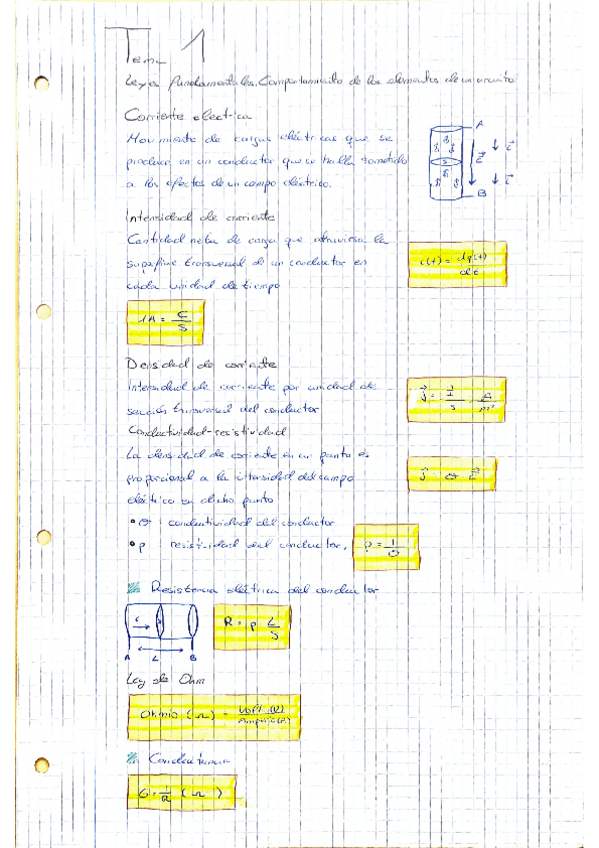 Tema 1
Leyes fundamentales. Comportamiento de los elementos de un circuito
Corriente electrica
Movimiento de cargas eléctricas que se
produce en un conductor que se halla sometido
a los efectos de un campo eléctrico.
A
B
Intensidad de corriente
Cantidad neta de carga que atraviesa la
superficie transversal de un conductor en
cada unidad de tiempo
i(t) = dq(t)/dt
1A = C/S
Densidad de corriente
Intensidad de corriente por unidad de
sección transversal del conductor
Conductividad-resistividad
La densidad de corriente en un punto es
proporcional a la intensidad del campo
eléctrico en dicho punto
• σ : conductividad del conductor
• ρ : resistividad del conductor.
ρ = 1/σ
Resistencia eléctrica del conductor
A L B
R = ρ L/S
Ley de Ohm
Ohmio (Ω) =
Conductancia